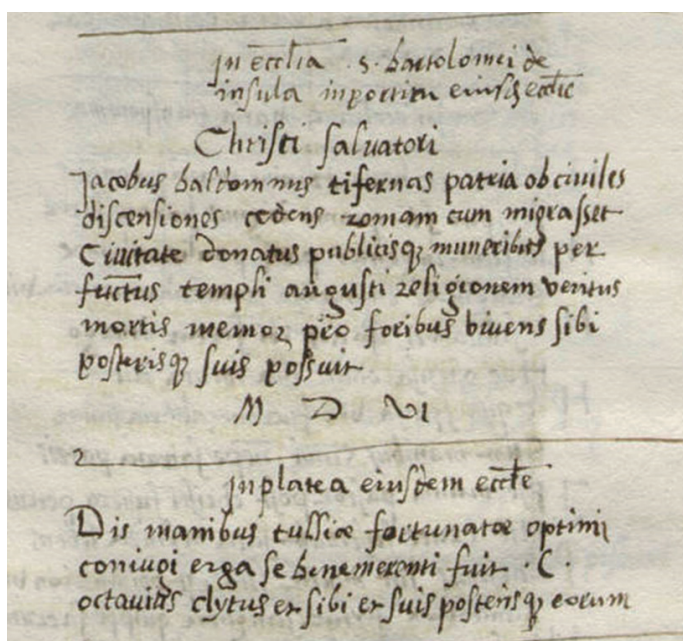 In eccl̄ia . s. bartolomei de
insula inporticu eiusdē eccl̄ie
Christi salvatori
Jacobus baldominus tifernas patria ob civiles
discensiones cedens romam cum migrasset
Civitate donatus publicisq; muneribus per
functus templi augusti religionem veritus
mortis memor pro foribus vivens sibi
posterisq; suis possuit
M D VI
2
In platea eiusdem eccl̄e
Dis manibus tulliæ fortunatæ optimi
coniugi erga se benemerenti fuit . C .
octavius clytus et sibi et suis posterisq; eorum